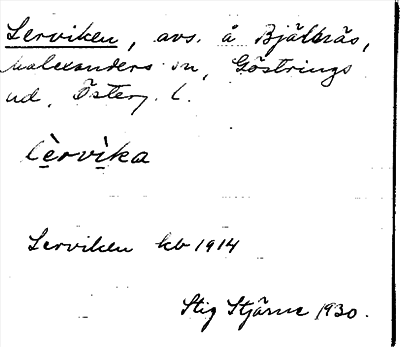 Lerviken, avs. å Bjälnäs,
Malexanders sn, Göstrings
hd, Österg. l.
lèrvìka
Lerviken kb 1914
Stig Stjärne 1930.